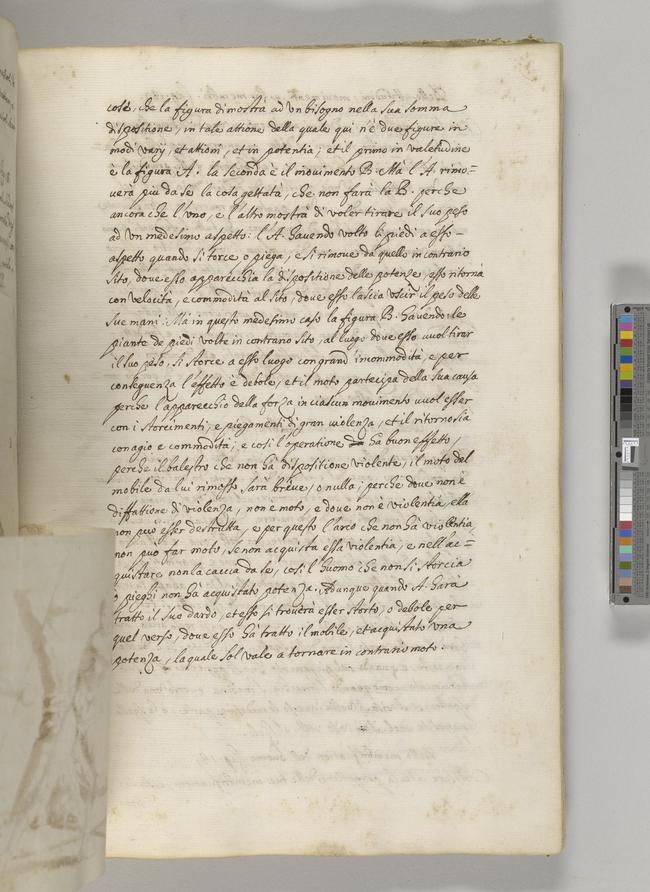 cose, che la figura dimostrà ad un bisogno nella sua somma
dispositione, in tale attione della quale qui n'è due figure in
modi varij, et attioni, et in potentia; et il primo in valetudine
è la figura A. la seconda è il movimento B. Mà l'A. rimo-
verà piu da se la cosa gettatà, che non farà la B. perche
ancora che l'uno, e l'altro mostrà di voler tirare il suo peso
ad un medesimo aspetto: l'A. havendo volto li piedi a esso
aspetto quando si torce, o piega, e si rimove da quello in contrario
sito, dove esso apparecchia la dispositione delle potenze, esso ritornà
con velocità, e commodità al sito, dove esso lascia uscir il peso delle
sue mani: Mà in questo medesimo caso la figura B. havendo le
piante de piedi volte in contrario sito, al luogo dove esso vuol tirar
il suo peso, si storce a esso luogo con grand' incommodità, e per
conseguenza l'effetto è debole, et il moto partecipa della sua causa
perche l'apparecchio della forza in ciascun movimento vuol esser
con i storcimenti, e piegamenti di gran violenza, et il ritorno sia
con agio e commodità; e cosi l'operatione ha buon effetto,
perche il balestro che non hà dispositione violente, il moto del
mobile da lui rimosso sarà breve, o nulla; perche dove non è
disfattione di violenza, non e moto, e dove non è violentia, ella
non può esser destrutta, e per questo l'arco che non hà violentia,
non può far moto, se non acquista essa violentia, e nell'ac-
quistare non la caccia da se, cosi l'huomo che non si storcia
o pieghi non hà acquistato potenza. Adunque quando A. harà
tratto il suo dardo, et esso si troverà esser storto, o debole per
quel verso, dove esso hà tratto il mobile, et acquistato una
potenza, la quale sol vale a tornare in contrario moto.